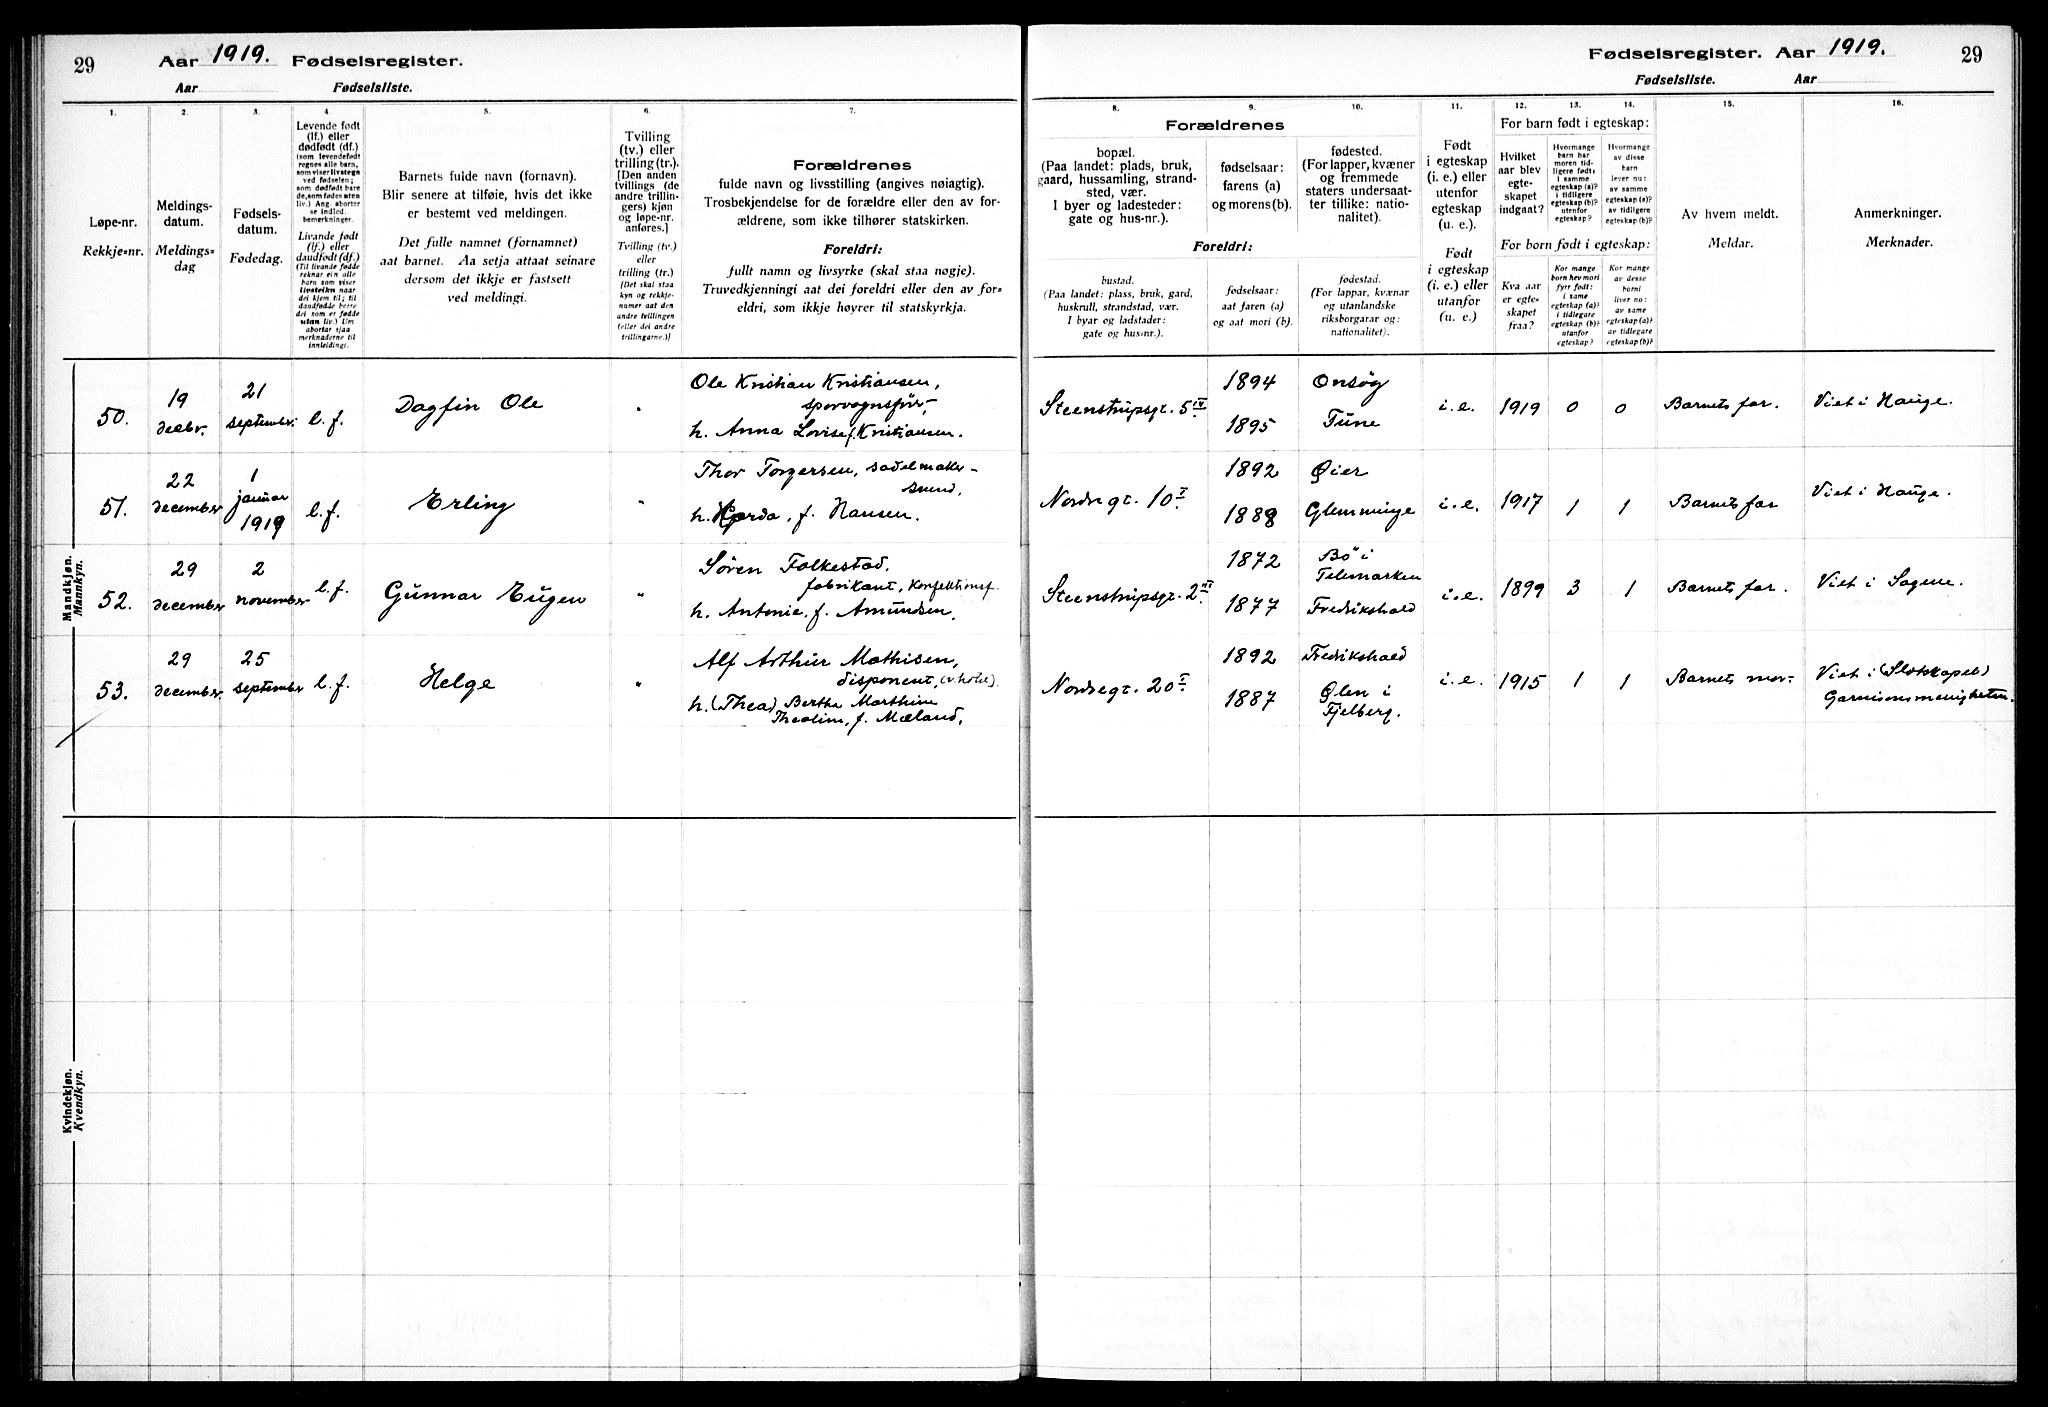 29
Aar 1919. Fødselsregister.
Aar Fødselsliste.
1.
2.
3.
4.
5.
6.
7.
Løpe-nr.
Rekkje=nr.
Meldings-
datum.
Meldings=
dag
Fødsels-
datum.
Fødedag.
Levende født
(lf.) eller
dødfødt (df.)
(som levendefødt
regnes alle barn,
som viser livstegn
ved fødselen;
som dødfødt bare
de, som fødes uten
liv.) Ang. aborter
se indled.
bemerkninger.
Livande født
(lf.) eller
daudfødt (df.)
(Til livande fødde
reknar ein alle
barn som viser
livsteikn naar
dei kjem til; til
daudfødde berre
dei som er fødde
utan liv.) Um
abortar sjaa
merknaderne til
innleidingi.
Barnets fulde navn (fornavn).
Blir senere at tilføie, hvis det ikke
er bestemt ved meldingen.
Det fulle namnet (fornamnet)
aat barnet. Aa setja attaat seinare
dersom det ikkje er fastsett
ved meldingi.
Tvilling
(tv.) eller
trilling (tr.).
[Den anden
tvillings (de
andre trillin-
gers) kjøn
og løpe-nr.
anføres.]
Tvilling (tv.)
eller
trilling (tr.)
[Det skal staa
kyn og rekkje-
numer aat den
andre tvillingen
(eller dei andre
trillingarne.)]
Forældrenes
fulde navn og livsstilling (angives nøiagtig).
Trosbekjendelse for de forældre eller den av for-
ældrene, som ikke tilhører statskirken.
Foreldri:
fullt namn og livsyrke (skal staa nøgje).
Truvedkjenningi aat dei foreldri eller den av for=
eldri, som ikkje høyrer til statskyrkja.
Mandkjøn.
Mannkyn.
50. 19 decbr. 21 september l. f. Dagfin Ole " Ole Kristian Kristiansen,
sporvognsför.,
h. Anna Lovise f. Kristiansen.
51. 22 december 1 januar 1919 l. f. Erling " Thor Torgersen, sadelmaker-
svend,
h. , f. Hansen.
52. 29 december 2 november l. f. Gunnar Eugen " Søren Folkestad.
fabrikant, konfektionsf.
h. Antonie, f. Amundsen.
53. 29 december 25 september l. f. Helge " Alf Arthur Mathisen,
disponent, 
h. (Thea) Berthe Marthine
Theoline, f. Mæland.
Kvindekjøn.
Kvendkyn.
Fødselsregister. Aar 1919.
29
Fødselsliste. Aar
8.
9.
10.
11.
12.
13.
14.
15.
16.
Forældrenes
bopæl.
(Paa landet: plads, bruk,
gaard, hussamling, strand-
sted, vær.
I byer og ladesteder:
gate og hus-nr.).
fødselsaar:
farens (a)
og morens (b).
fødested.
(For lapper, kvæner
og fremmede
staters undersaat-
ter tillike: natio-
nalitet).
Foreldri:
bustad.
(Paa landet: plass, bruk, gard,
huskrull, strandstad, vær.
I byar og ladstader:
gate og hus=nr.).
fødselsaar:
aat faren (a)
og aat mori (b).
fødestad.
(For lappar, kvænar
og utanlandske
riksborgarar og:
nationalitet).
Født
i egteskap
(i. e.) eller
utenfor
egteskap
(u. e.).
Født
i egteskap
(i. e.) eller
utanfor
egteskap
(u. e.)
For barn født i egteskap:
Hvilket
aar blev
egte-
skapet
indgaat?
Hvormange
barn har
moren tid-
ligere født:
i samme
egteskap (a)?
i tidligere
egteskap (b)?
utenfor
egteskap?
Hvormange
av disse
barn
lever nu:
av samme
egteskap (a)?
av tidligere
egteskap (b)?
For born født i egteskap:
Kva aar
er egte-
skapet
fraa?
Kor mange
born hev mori
fyrr født:
i same
egteskap (a)?
i tidlegare
egteskap (b)?
utanfor
egteskap?
Kor mange
av desse
borni
liver no:
av same
egteskap (a)?
av tidlegare
egteskap (b)?
Av hvem meldt.
Meldar.
Anmerkninger.
Merknader.
Steenstrupsgt. 5 IV 1894 1895 Onsøy Tune i. e. 1919 0 0 Barnets far. Viet i Hauge.
Nordregt. 10 I 1892 1888 Øier Glemminge i. e. 1917 1 1 Barnets far Viet i Hauge.
Steenstrupsgt. 2. 1872 1877 Bö i Telemarken Fredrikshald i. e. 1899 3 1 Barnets far. Viet i Sagene.
Nordregt. 20 I 1892 1887 Fredrikshald Ølen i Fjelberg. i. e. 1915 1 1 Barnets mor. Viet i (Slotskapel)
Garnisonsmenigheten.